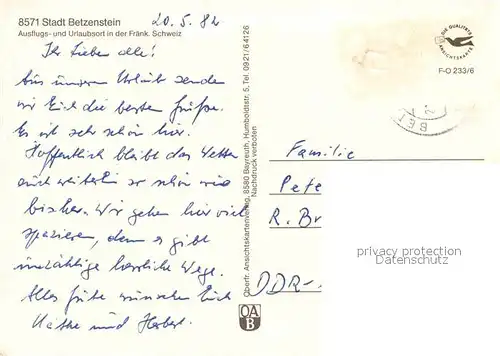 8571 Stadt Betzenstein
Ausflugs- und Urlaubsort in der Fränk. Schweiz
20.5.82
Ihr Lieben alle!
Aus unserem Urlaub senden
wir Euch die besten Grüße.
Es ist sehr schön hier.
Hoffentlich bleibt das Wetter
auch weiterhin so schön wie
bisher. Wir gehen hier viel
spazieren, denn es gibt
unzählige herrliche Wege.
Alles Gute wünschen Euch
Käthe und Herbert.
Oberfr. Ansichtskartenverlag, 8580 Bayreuth, Humboldtstr. 5, Tel. 0921/64126
Nachdruck verboten
OA
B
DIE QUALITÄTS
ANSICHTSKARTE
F-O 233/6
Familie
Pete
R. Br
DDR-
privacy protection
Datenschutz